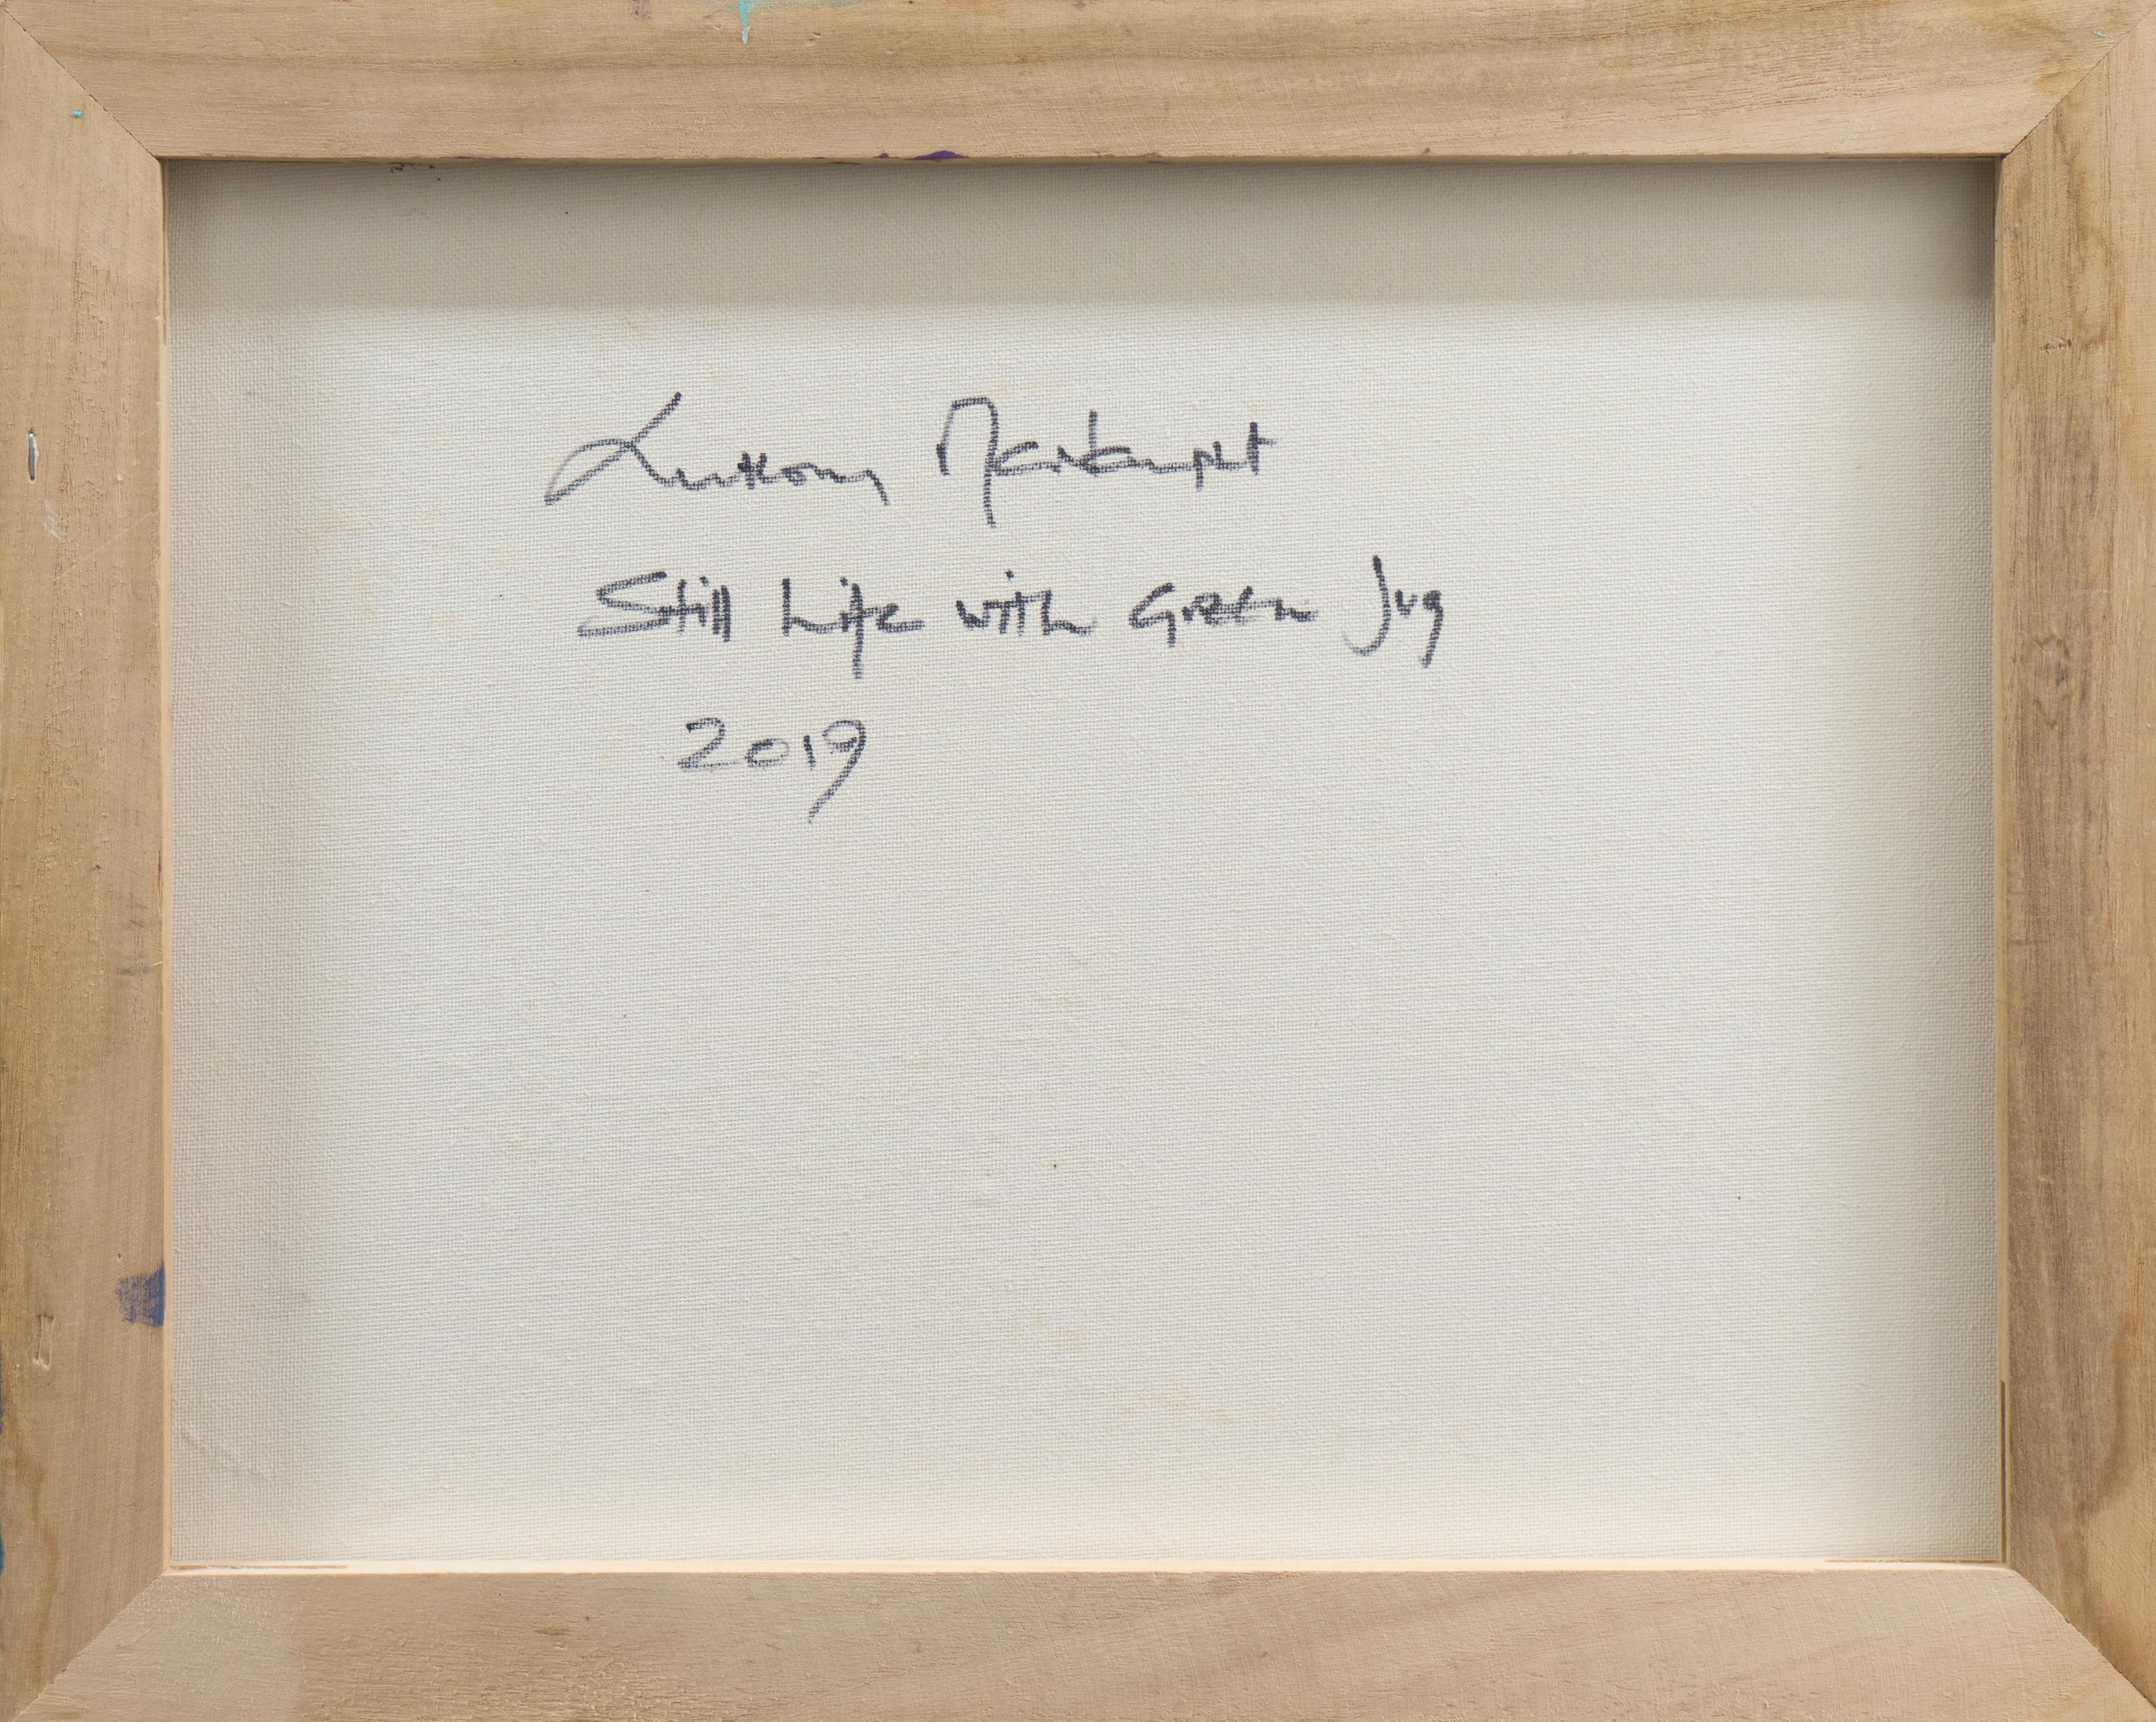 Anthony
Still Life with Green Jug
2019